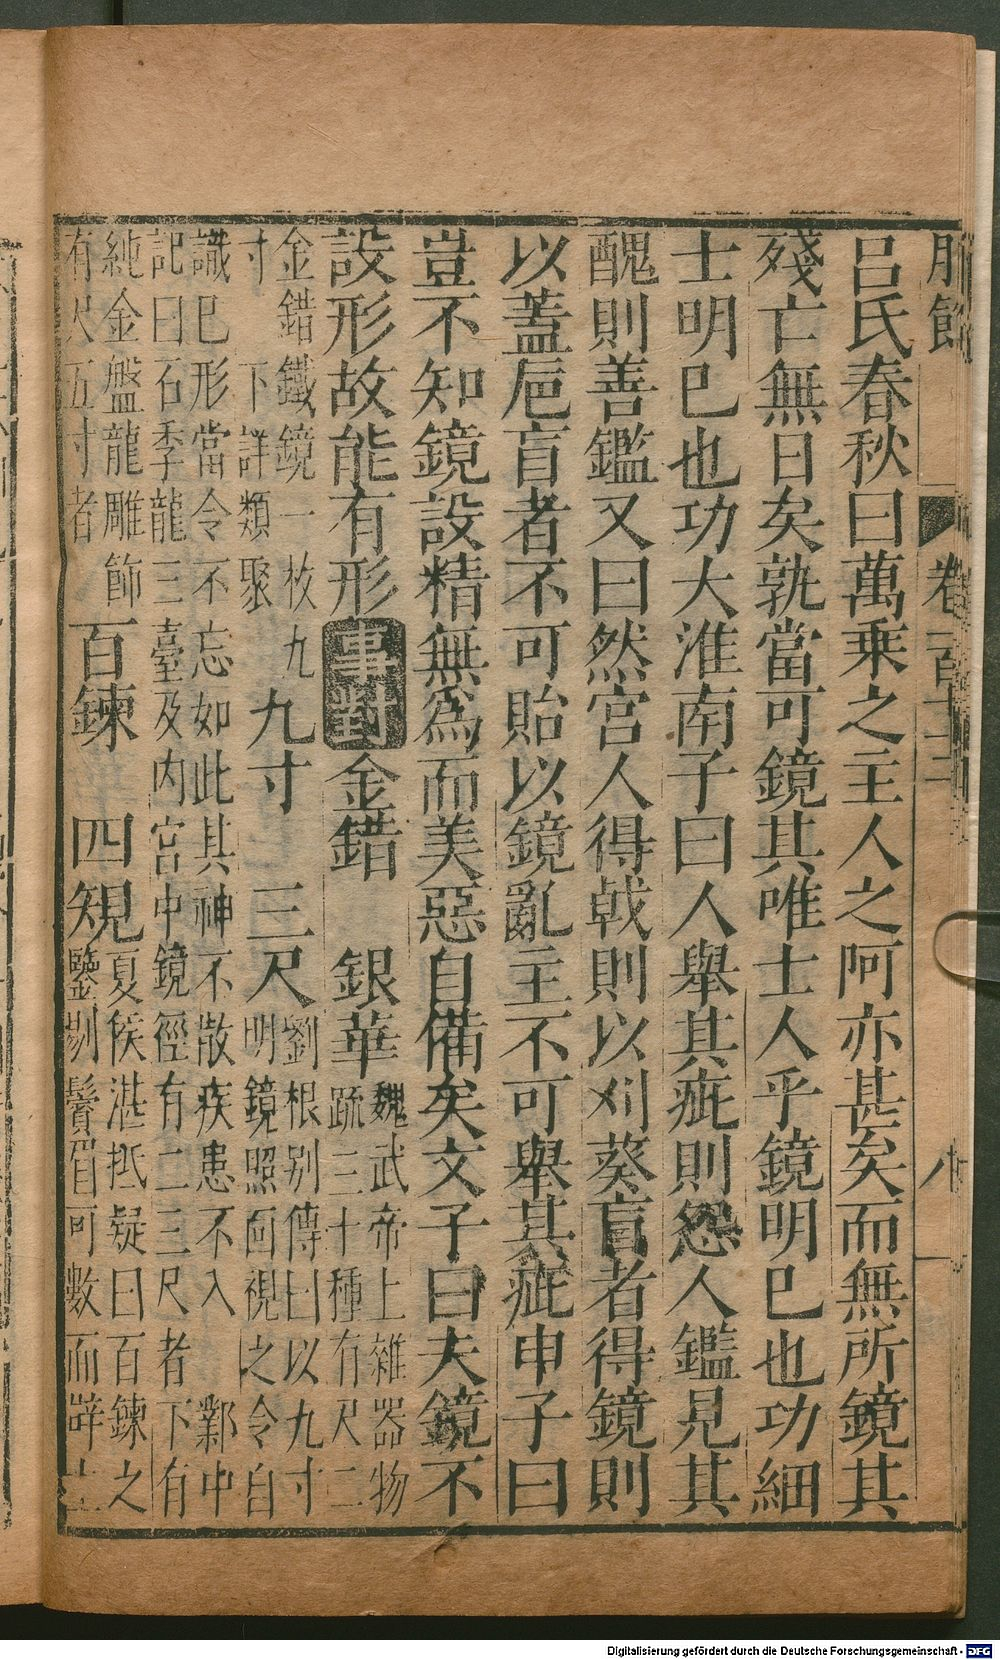 服飾 卷一百十三 八
呂氏春秋曰萬乘之主人之阿亦甚矣而無所鏡其
殘亡無日矣孰當可鏡其唯士人乎鏡明巳也功細
士明巳也功大淮南子曰人舉其疵則怨人鑑見其
醜則善鑑又曰然宮人得戟則以刈葵盲者得鏡則
以蓋巵盲者不可貽以鏡亂主不可舉其疵申子曰
豈不知鏡設精無為而美惡自備矣文子曰夫鏡不
設形故能有形 事對 金錯 銀華 魏武帝上雜器物
疏三十種有尺二
金錯鐵鏡一枚九
寸 下詳類聚 九寸 三尺 劉根别傳曰以九寸
明鏡照面視之令自
識巳形當令不忘如此其神不散疾患不入 鄴中
記曰石季龍三臺及内宮中鏡徑有二三尺者下有
純金盤龍雕飾
有尺五寸者 百鍊 四規 夏侯湛抵疑曰百鍊之
鑒别鬢眉可數而辟
Digitalisierung gefördert durch die Deutsche Forschungsgemeinschaft - DFG